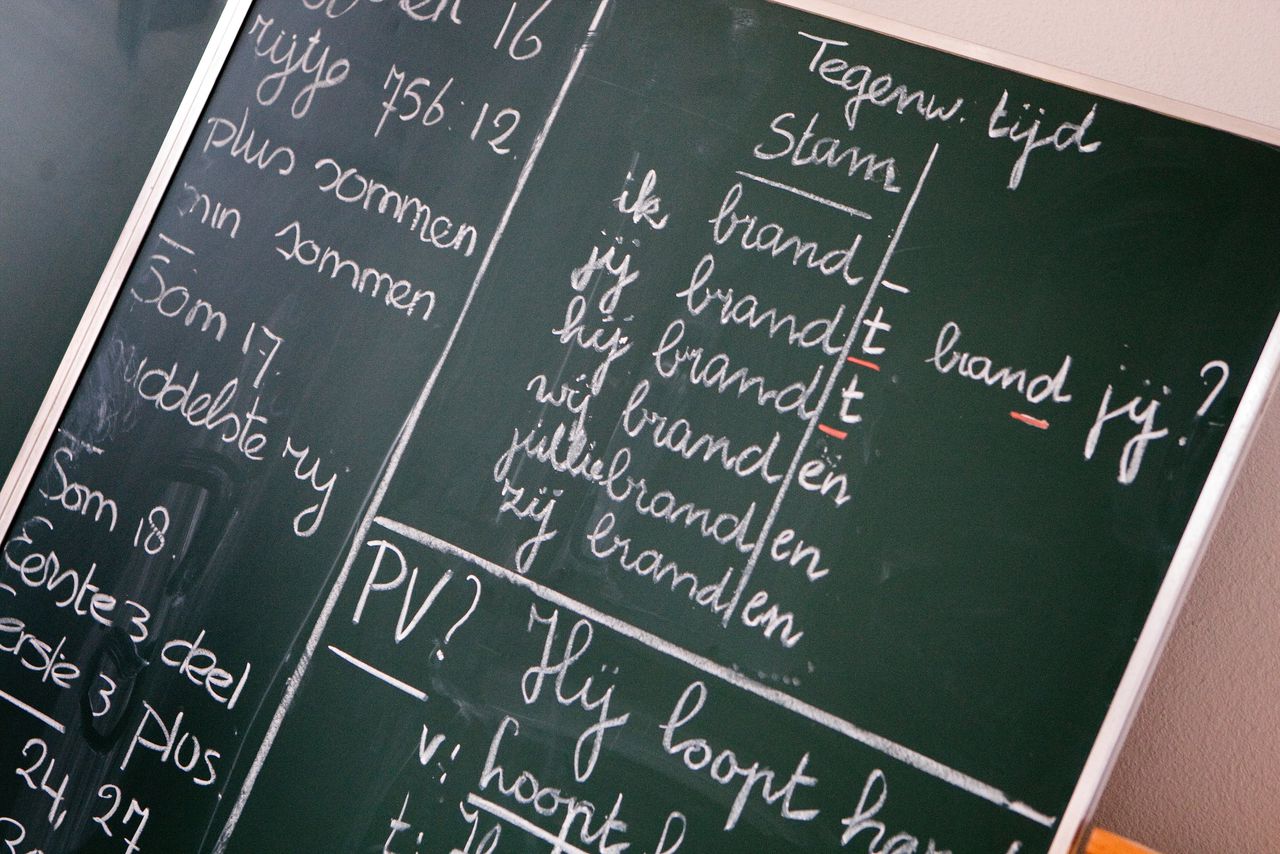 16
rijtje 756:12.
plus sommen
min sommen
Som 17.
middelste rij
Som 18.
Eerste 3 deel
Eerste 3 plus
24, 27
Tegenw. tijd
Stam
ik brand -
jij brand t brand jij?
hij brand t
wij brand en
jullie brand en
zij brand en
PV? Hij loopt
v: hoopt
t: